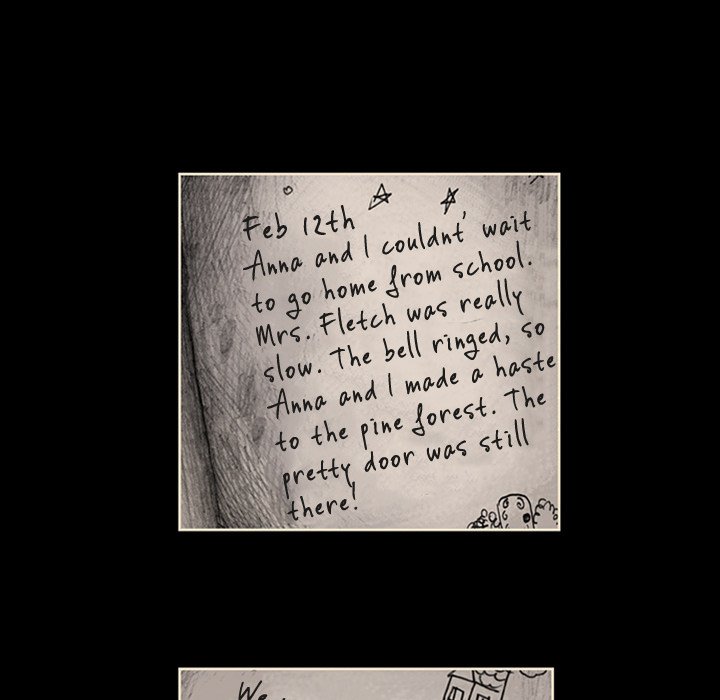 Feb 12th
Anna and I couldnt' wait
to go home from school.
Mrs. Fletch was really
slow. The bell ringed, so
Anna and I made a haste
to the pine forest. The
pretty door was still
there!
We